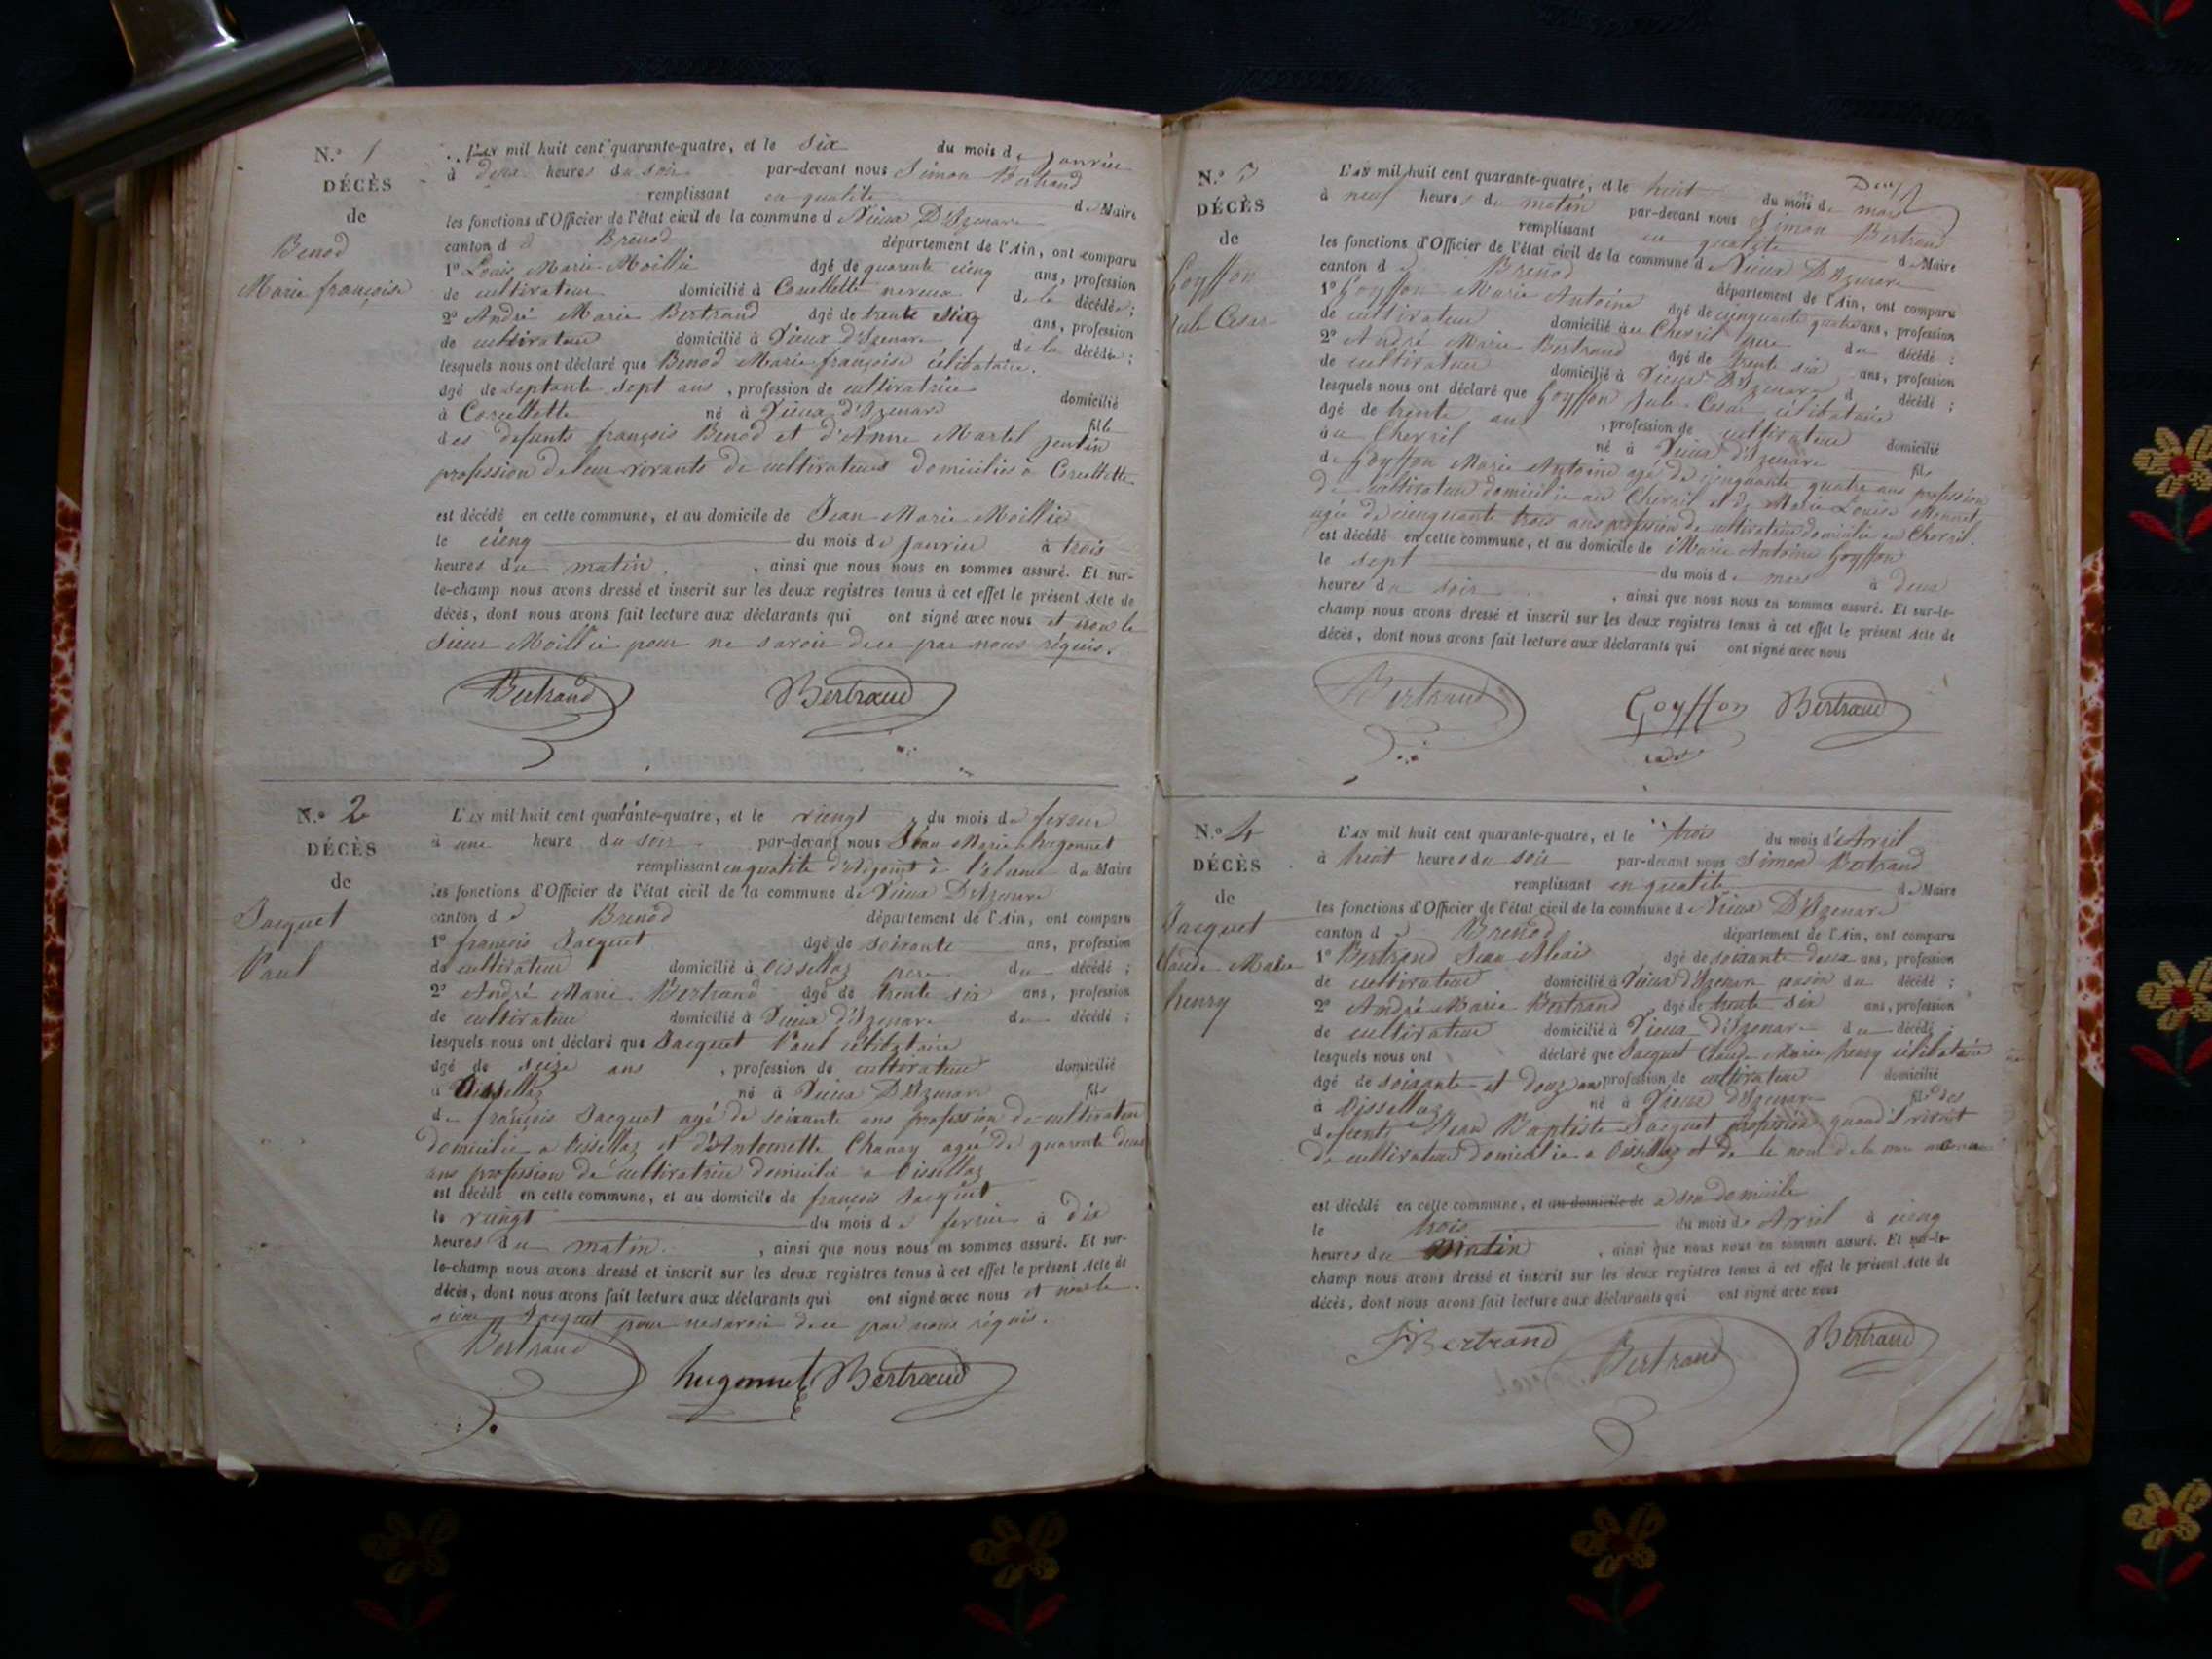 N.º 1
DÉCÈS
de
Benod
Marie françoise
L'AN mil huit cent quarante-quatre, et le six du mois de janvier
à deux heures du soir par-devant nous Simon Bertrand
remplissant en qualité de Maire
les fonctions d'Officier de l'état civil de la commune d Vieux D'Izenave
canton d e Brenod département de l'Ain, ont comparu
1º Louis Marie Moillie âgé de quarente cinq ans, profession
de cultivateur domicilié à Corcellette neveux de la décédée ;
2º André Marie Bertrand âgé de trente six ans, profession
de cultivateur domicilié à Vieux d'Izenave de la décédée ;
lesquels nous ont déclaré que Benod Marie françoise célibataire.
âgé de septante sept ans , profession de cultivatrice domicilié
à Corcellette né à Vieux d'Izenave fille
des defunts françois Benod et d'Anne Martel jentin
profession de leur vivants de cultivateurs domiciliés à Corcellette
est décédé en cette commune, et au domicile de Jean Marie Moillie
le cinq du mois de janvier à trois
heures du matin. , ainsi que nous nous en sommes assuré. Et sur-
le-champ nous avons dressé et inscrit sur les deux registres tenus à cet effet le présent Acte de
décès, dont nous avons fait lecture aux déclarants qui ont signé avec nous et non le
sieur Moillie pour ne savoir de ce par nous réquis.
Bertrand Bertrand
N.º 2
DÉCÈS
de
Jacquet
Paul
L'AN mil huit cent quarante-quatre, et le vingt du mois de fevrier
à une heure du soir par-devant nous Jean Marie hugonnet
remplissant en qualité d'Adjoint à l'absence du Maire
les fonctions d'Officier de l'état civil de la commune de Vieux D'Izenave
canton d e Brenod département de l'Ain, ont comparu
1º françois Jacquet âgé de soixante ans, profession
de cultivateur domicilié à Oissellaz pere du décédé ;
2º André Marie Bertrand âgé de trente six ans, profession
de cultivateur domicilié à Vieux d'Izenave du décédé ;
lesquels nous ont déclaré que Jacquet Paul célibataire
âgé de seize ans , profession de cultivateur domicilié
à Oissellaz né à Vieux D'Izenave fils
de françois Jacquet agé de soixante ans profession de cultivateur
domicilié a Oissellaz et d'Antoinette Chanay agée de quarente deux
ans profession de cultivatrice domicilié a Oissellaz
est décédé en cette commune, et au domicile de françois Jacquet
le vingt du mois de fevrier à dix
heures du matin. , ainsi que nous nous en sommes assuré. Et sur-
le-champ nous avons dressé et inscrit sur les deux registres tenus à cet effet le présent Acte de
décès, dont nous avons fait lecture aux déclarants qui ont signé avec nous et non le
sieur Jacquet pour ne savoir de ce par nous réquis.
Bertrand hugonnet Bertrand
N.º 3
DÉCÈS
de
Goyffon
Jule Cesar
L'AN mil huit cent quarante-quatre, et le huit du mois de mars
à neuf heures du matin par-devant nous Simon Bertrand
remplissant en qualité de Maire
les fonctions d'Officier de l'état civil de la commune d Vieux D'Izenave
canton d e Brenod département de l'Ain, ont comparu
1º Goyffon Marie Antoine âgé de cinquante quatre ans, profession
de cultivateur domicilié au Chevril pere du décédé ;
2º André Marie Bertrand âgé de trente six ans, profession
de cultivateur domicilié à Vieux D'Izenave d décédé ;
lesquels nous ont déclaré que Goyffon Jule Cesar célibataire
âgé de trente ans , profession de cultivateur domicilié
au Chevril né à Vieux d'Izenave fils
de Goyffon Marie Antoine agé de cinquante quatre ans profession
de cultivateur domicilié au Chevril et de Marie Louise Monnet
agée de cinquante trois ans profession de cultivatrice domicilié au Chevril.
est décédé en cette commune, et au domicile de Marie Antoine Goyffon
le sept du mois de mars à deux
heures du soir , ainsi que nous nous en sommes assuré. Et sur-le-
champ nous avons dressé et inscrit sur les deux registres tenus à cet effet le présent Acte de
décès, dont nous avons fait lecture aux déclarants qui ont signé avec nous
Bertrand Goyffon Bertrand
N.º 4
DÉCÈS
de
Jacquet
Claude Marie
henry
L'AN mil huit cent quarante-quatre, et le trois du mois d'Avril
à huit heures du soir par-devant nous Simon Bertrand
remplissant en qualité de Maire
les fonctions d'Officier de l'état civil de la commune d Vieux D'Izenave
canton d e Brenod département de l'Ain, ont comparu
1º Bertrand Jean Alexis âgé de soixante deux ans, profession
de cultivateur domicilié à Vieux d'Izenave cousin du décédé ;
2º André Marie Bertrand âgé de trente six ans, profession
de cultivateur domicilié à Vieux D'Izenave du décédé ;
lesquels nous ont déclaré que Jacquet Claude Marie henry célibataire
âgé de soixante et douze ans profession de cultivateur domicilié
à Oissellaz né à Vieux d'Izenave fils des
defunts Jean Baptiste Jacquet profession quand il vivait
de cultivateur domicilié a Oissellaz et de le nom de la mere
est décédé en cette commune, et au domicile de a son domicile
le trois du mois de Avril à cinq
heures du matin , ainsi que nous nous en sommes assuré. Et sur-le-
champ nous avons dressé et inscrit sur les deux registres tenus à cet effet le présent Acte de
décès, dont nous avons fait lecture aux déclarants qui ont signé avec nous
JBertrand Bertrand Bertrand